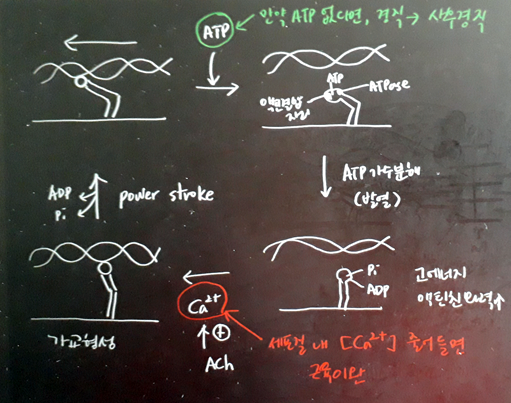 ATP
만약 ATP 없다면, 경직 → 사후경직
ATP
ATPase
액틴결합
자리
ATP 가수분해
(발열)
ADP
Pi
power stroke
Pi
ADP
고에너지
액틴친화력↑
Ca²⁺
가교형성
⊕
ACh
세포질 내 [Ca²⁺] 줄어들면
근육이완